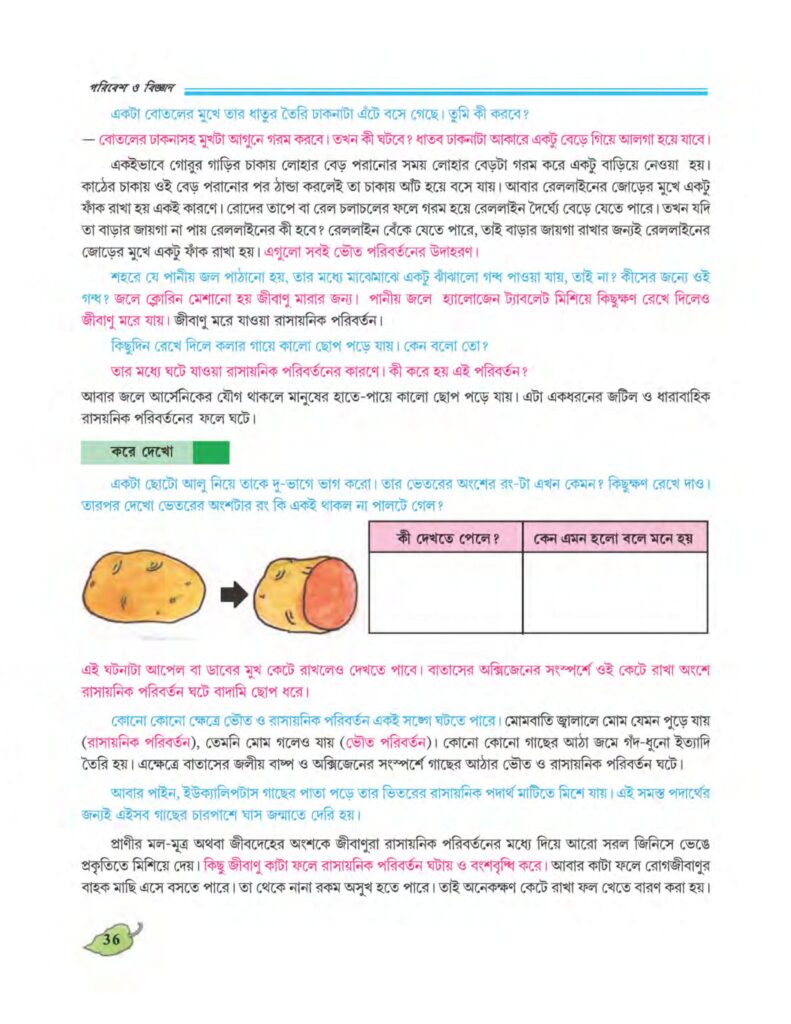 পরিবেশ ও বিজ্ঞান
একটা বোতলের মুখে তার ধাতুর তৈরি ঢাকনাটা এঁটে বসে গেছে। তুমি কী করবে?
— বোতলের ঢাকনাসহ মুখটা আগুনে গরম করবে। তখন কী ঘটবে? ধাতব ঢাকনাটা আকারে একটু বেড়ে গিয়ে আলগা হয়ে যাবে।
একইভাবে গোরুর গাড়ির চাকায় লোহার বেড় পরানোর সময় লোহার বেড়টা গরম করে একটু বাড়িয়ে নেওয়া হয়।
কাঠের চাকায় ওই বেড় পরানোর পর ঠান্ডা করলেই তা চাকায় আঁট হয়ে বসে যায়। আবার রেললাইনের জোড়ের মুখে একটু
ফাঁক রাখা হয় একই কারণে। রোদের তাপে বা রেল চলাচলের ফলে গরম হয়ে রেললাইন দৈর্ঘ্যে বেড়ে যেতে পারে। তখন যদি
তা বাড়ার জায়গা না পায় রেললাইনের কী হবে? রেললাইন বেঁকে যেতে পারে, তাই বাড়ার জায়গা রাখার জন্যই রেললাইনের
জোড়ের মুখে একটু ফাঁক রাখা হয়। এগুলো সবই ভৌত পরিবর্তনের উদাহরণ।
শহরে যে পানীয় জল পাঠানো হয়, তার মধ্যে মাঝেমাঝে একটু ঝাঁঝালো গন্ধ পাওয়া যায়, তাই না? কীসের জন্যে ওই
গন্ধ? জলে ক্লোরিন মেশানো হয় জীবাণু মারার জন্য। পানীয় জলে হ্যালোজেন ট্যাবলেট মিশিয়ে কিছুক্ষণ রেখে দিলেও
জীবাণু মরে যায়। জীবাণু মরে যাওয়া রাসায়নিক পরিবর্তন।
কিছুদিন রেখে দিলে কলার গায়ে কালো ছোপ পড়ে যায়। কেন বলো তো?
তার মধ্যে ঘটে যাওয়া রাসায়নিক পরিবর্তনের কারণে। কী করে হয় এই পরিবর্তন?
আবার জলে আর্সেনিকের যৌগ থাকলে মানুষের হাতে-পায়ে কালো ছোপ পড়ে যায়। এটা একধরনের জটিল ও ধারাবাহিক
রাসয়নিক পরিবর্তনের ফলে ঘটে।
করে দেখো
একটা ছোটো আলু নিয়ে তাকে দু-ভাগে ভাগ করো। তার ভেতরের অংশের রং-টা এখন কেমন? কিছুক্ষণ রেখে দাও।
তারপর দেখো ভেতরের অংশটার রং কি একই থাকল না পালটে গেল?
কী দেখতে পেলে?
কেন এমন হলো বলে মনে হয়
এই ঘটনাটা আপেল বা ডাবের মুখ কেটে রাখলেও দেখতে পাবে। বাতাসের অক্সিজেনের সংস্পর্শে ওই কেটে রাখা অংশে
রাসায়নিক পরিবর্তন ঘটে বাদামি ছোপ ধরে।
কোনো কোনো ক্ষেত্রে ভৌত ও রাসায়নিক পরিবর্তন একই সঙ্গে ঘটতে পারে। মোমবাতি জ্বালালে মোম যেমন পুড়ে যায়
(রাসায়নিক পরিবর্তন), তেমনি মোম গলেও যায় (ভৌত পরিবর্তন)। কোনো কোনো গাছের আঠা জমে গঁদ-ধুনো ইত্যাদি
তৈরি হয়। এক্ষেত্রে বাতাসের জলীয় বাষ্প ও অক্সিজেনের সংস্পর্শে গাছের আঠার ভৌত ও রাসায়নিক পরিবর্তন ঘটে।
আবার পাইন, ইউক্যালিপটাস গাছের পাতা পড়ে তার ভিতরের রাসায়নিক পদার্থ মাটিতে মিশে যায়। এই সমস্ত পদার্থের
জন্যই এইসব গাছের চারপাশে ঘাস জন্মাতে দেরি হয়।
প্রাণীর মল-মূত্র অথবা জীবদেহের অংশকে জীবাণুরা রাসায়নিক পরিবর্তনের মধ্যে দিয়ে আরো সরল জিনিসে ভেঙে
প্রকৃতিতে মিশিয়ে দেয়। কিছু জীবাণু কাটা ফলে রাসায়নিক পরিবর্তন ঘটায় ও বংশবৃদ্ধি করে। আবার কাটা ফলে রোগজীবাণুর
বাহক মাছি এসে বসতে পারে। তা থেকে নানা রকম অসুখ হতে পারে। তাই অনেকক্ষণ কেটে রাখা ফল খেতে বারণ করা হয়।
36